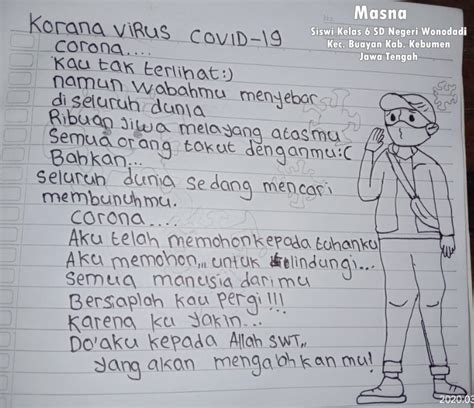 Masna
Siswi Kelas 6 SD Negeri Wonodadi
Kec. Buayan Kab. Kebumen
Jawa Tengah
Korana VIRUS COVID-19
corona....
Kau tak terlihat:)
namun wabahmu menyebar
di seluruh dunia
Ribuan jiwa melayang atasmu
Semua orang takut denganmu:(
Bahkan...
seluruh dunia sedang mencari
membunuhmu.
corona....
Aku telah memohon kepada tuhanku
Aku memohon,,, untuk lindungi...
Semua manusia darimu
Bersaplah kau pergi!!!
Karena ku yakin...
Do'aku kepada Allah SWT,,
yang akan mengalahkanmu!